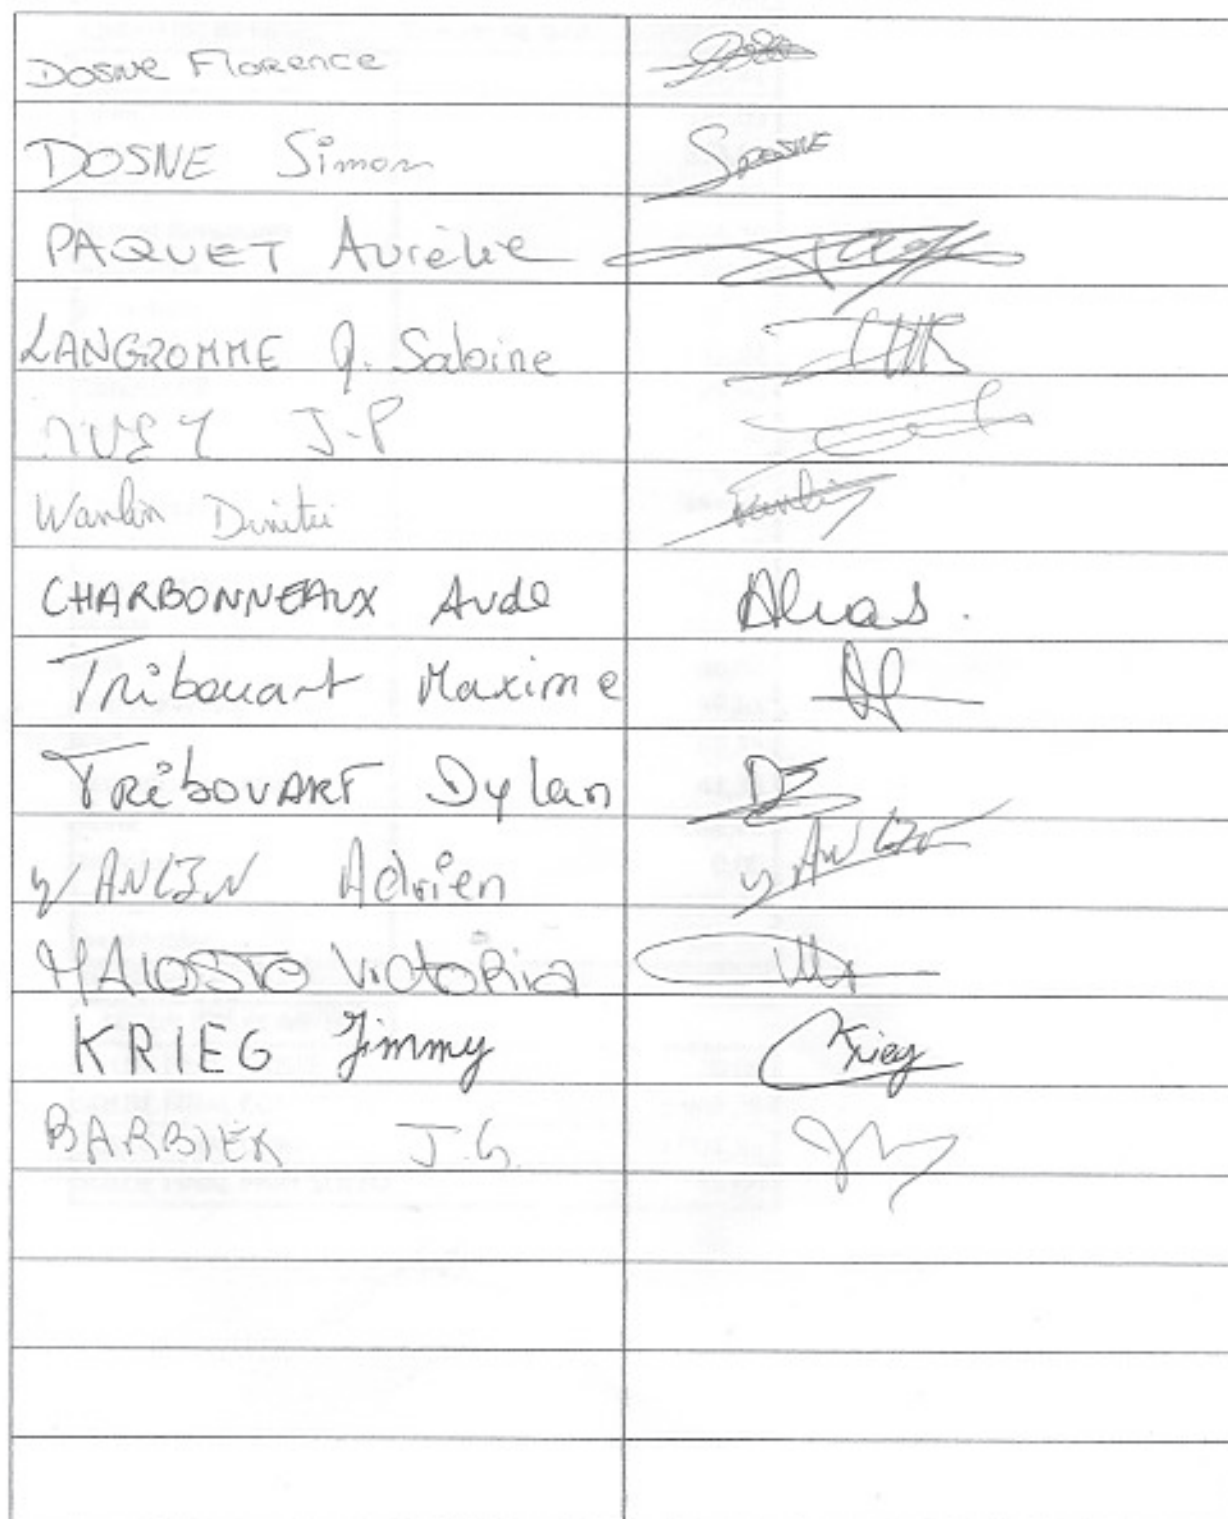 Dosne Florence
DOSNE Simon SDOSNE
PAQUET Aurélie
LANGROMME A. Sabine
J-P
Wanlin Dimitri Wanlin
CHARBONNEAUX Aude
Tribouart Maxime
TRiBOUART Dylan
WANLIN Adrien WANLIN
MALOSTO VictoRia
KRIEG Jimmy Krieg
BARBIER J.G.